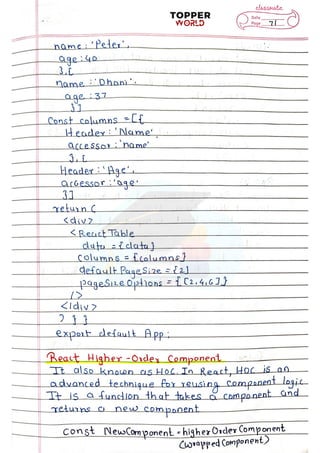 classmate
TOPPER
WORLD
Date
Page 71
name : 'Peter',
age : 40
},{
name : 'Dhoni',
age : 37
}]
Const columns = [{
Header : 'Name'
accessor : 'name'
},{
Header : 'Age',
accessor : 'age'
}]
return (
<div>
<React Table
data = {data}
Columns = {columns}
default PageSize = {2}
pageSize Options = {[2,4,6]}
/>
</div>
) } }
export default App;
React Higher-Order Component
It also known as HOC. In React, HOC is an
advanced technique for reusing component logic
It is a function that takes a component and
returns a new component
const NewComponent = higherOrderComponent
(wrapped Component)